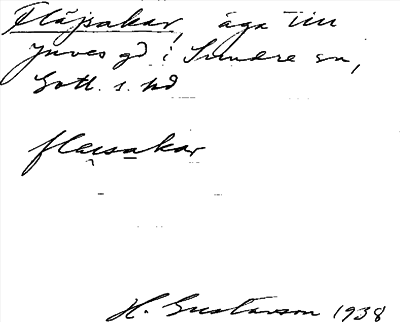 Fläjsakar, äga till
Juves gd i Sundre sn,
Gotl. s. hd
flaisakar
H. Gustavson 1938